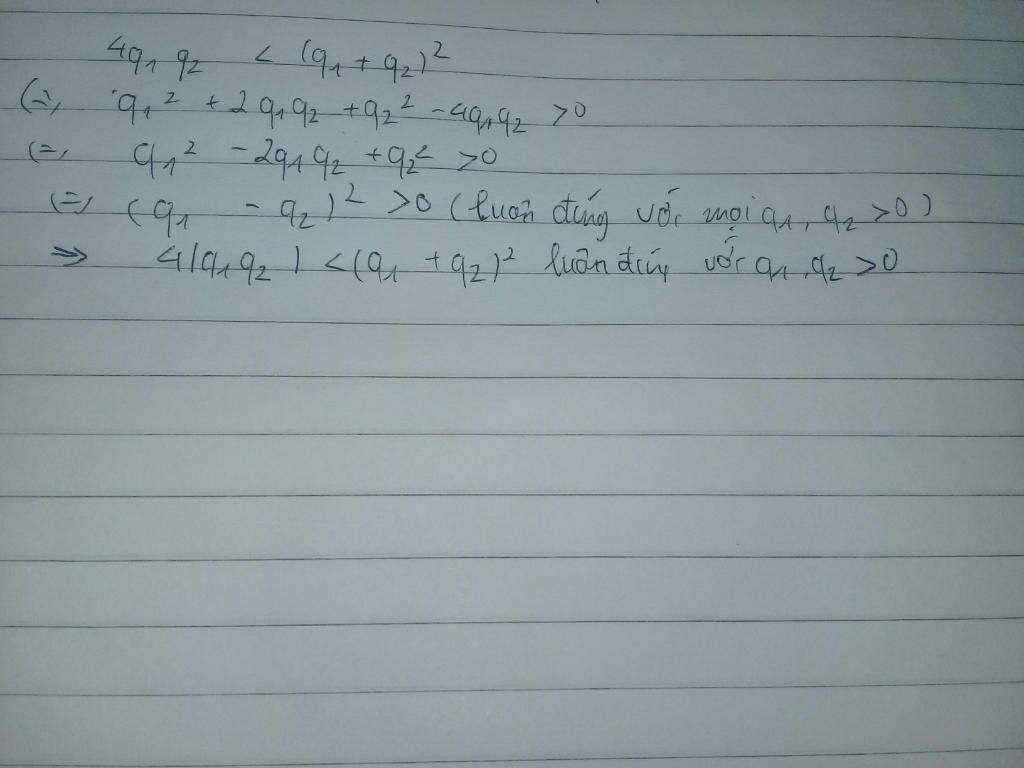 4q₁ q₂ < (q₁ + q₂)²
(=) q₁² + 2q₁q₂ + q₂² - 4q₁q₂ > 0
(=) q₁² - 2q₁q₂ + q₂² > 0
(=) (q₁ - q₂)² > 0 (luôn đúng với mọi q₁, q₂ > 0)
=> 4|q₁q₂| < (q₁ + q₂)² luôn đúng với q₁, q₂ > 0